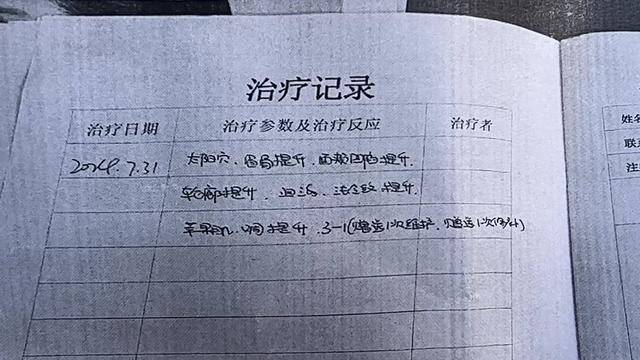 治疗记录
治疗日期 治疗参数及治疗反应 治疗者
2024.7.31 太阳穴、眉骨提升、面颊凹陷提升
轮廓提升、泪沟、法令纹提升
苹果肌、嘴角提升、3-1(赠送1次维护、赠送1次
姓名
联
注